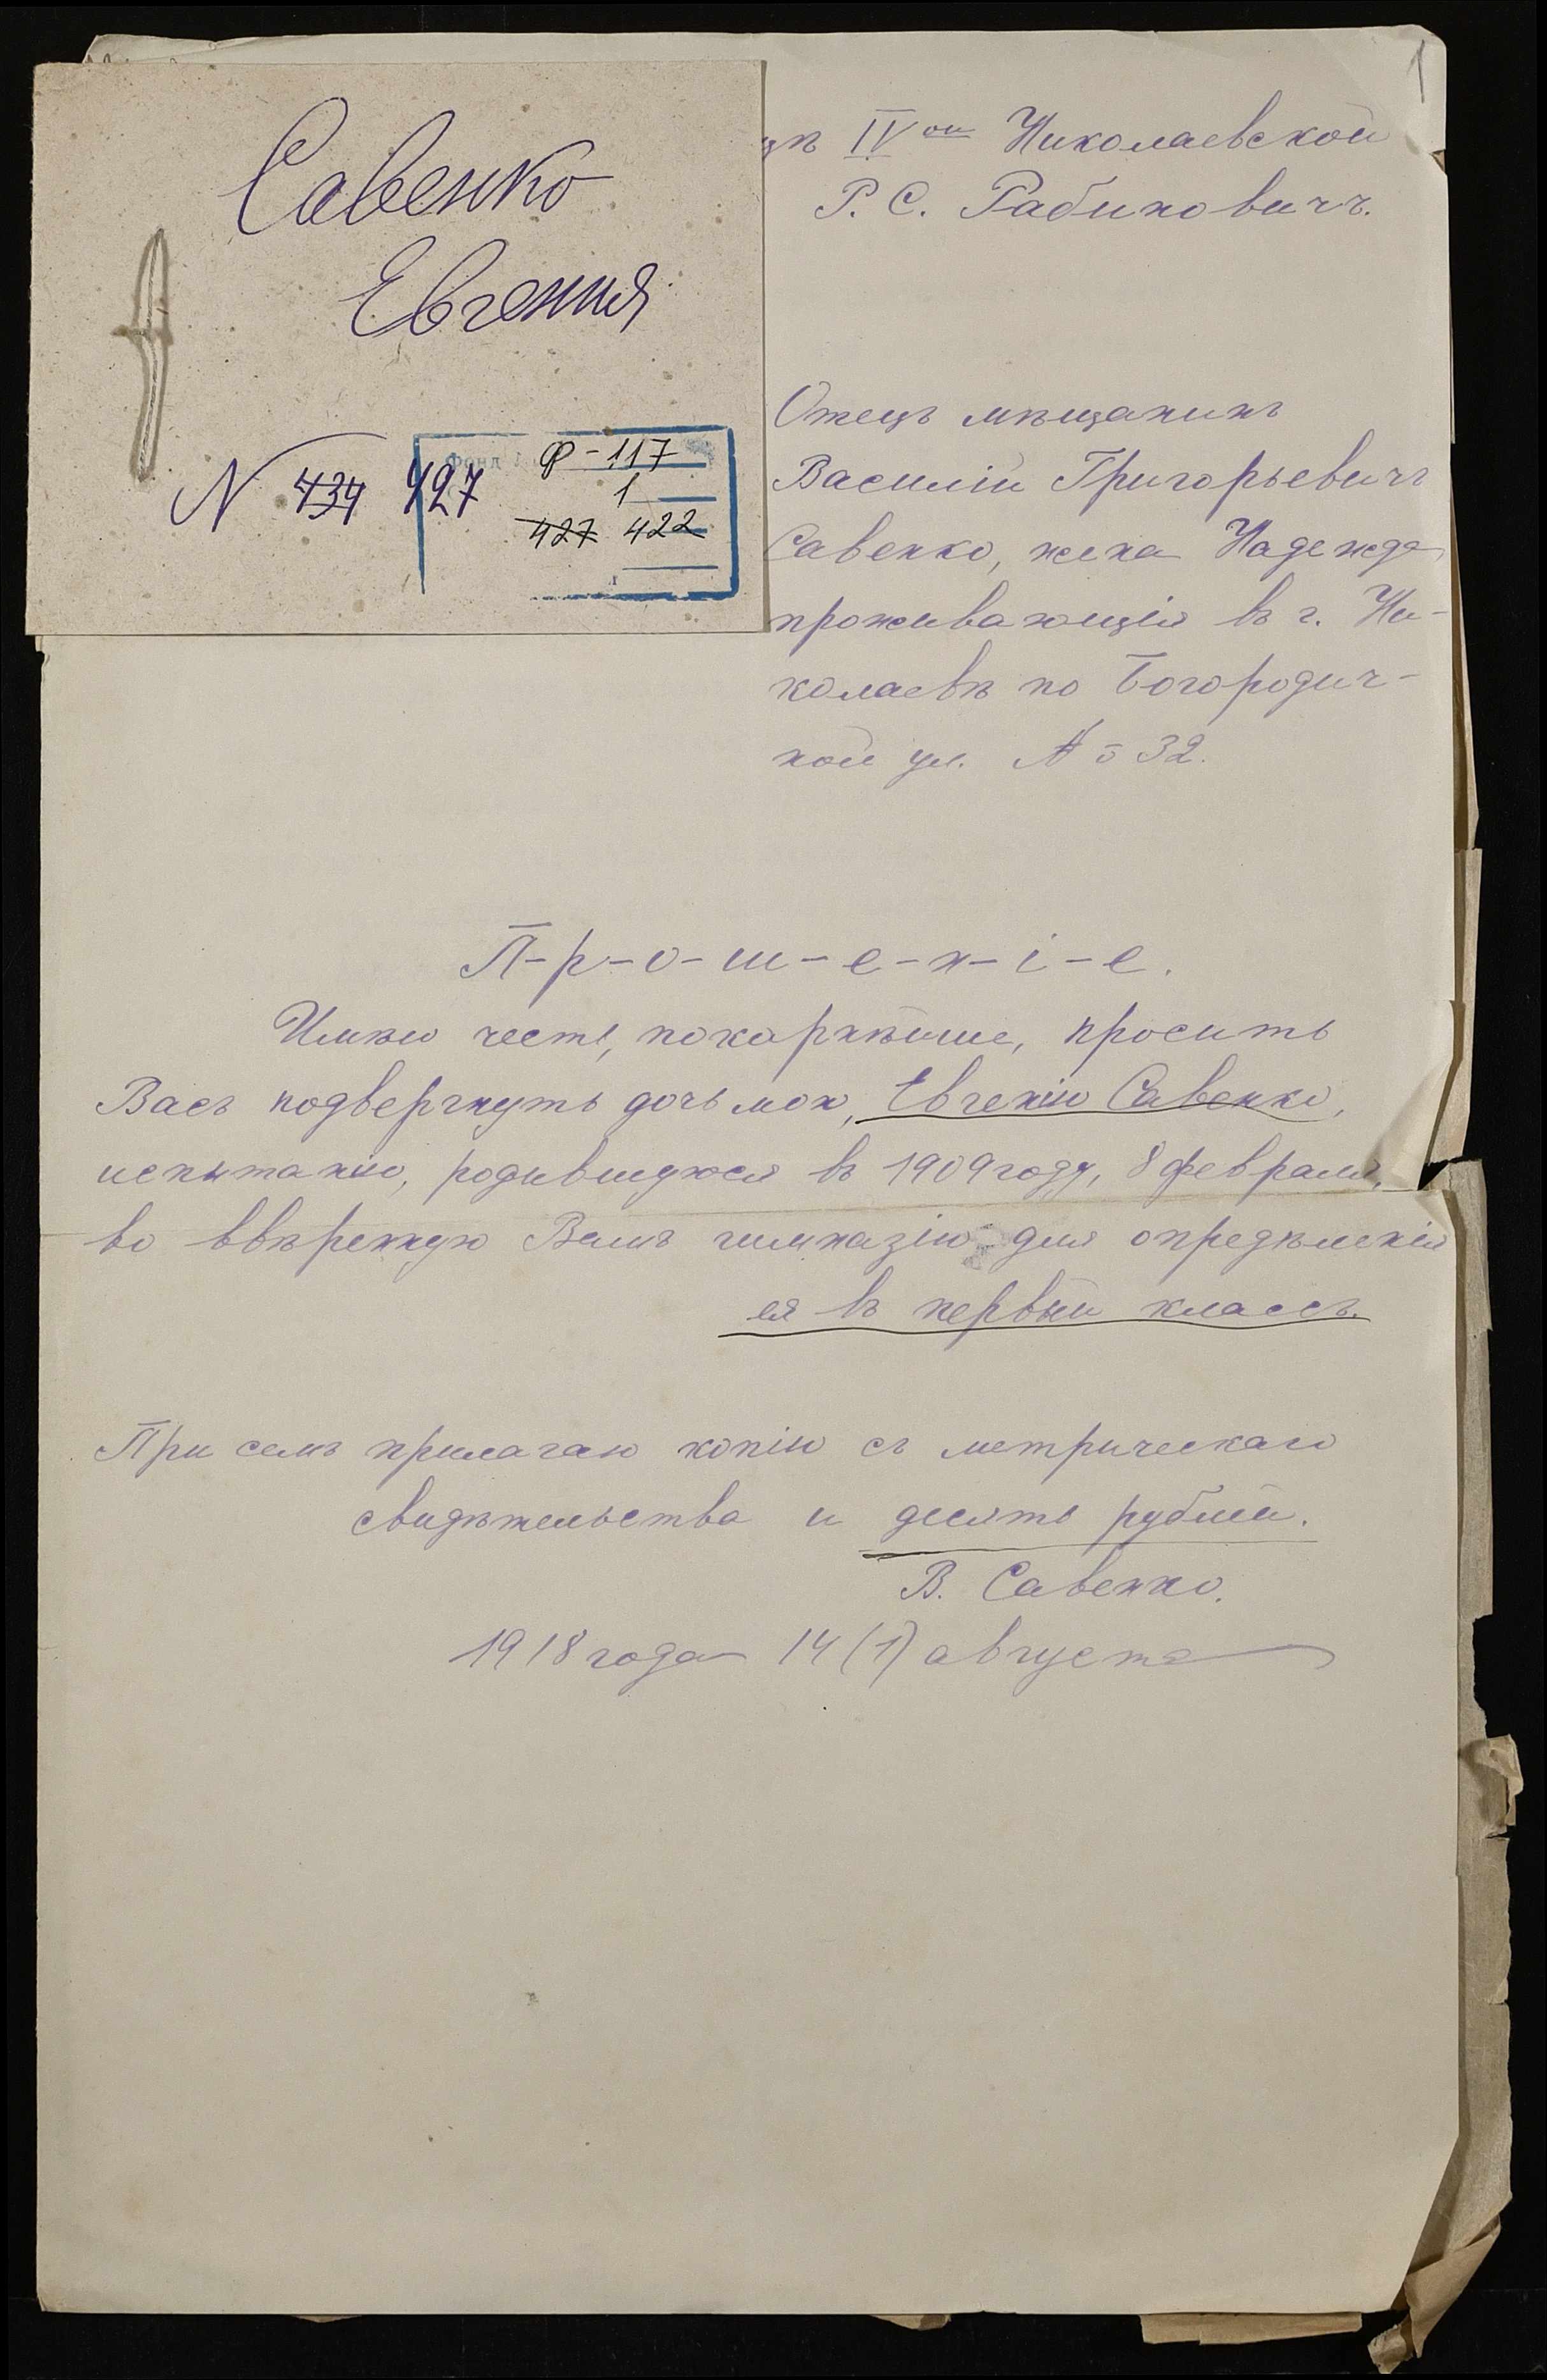 1
Савенко
Евгения
N 434 427
Фонд
Ф-117
1
427 422
цѣ IVой Николаевской
Р. С. Рабиновичъ.
Отецъ мѣщанинъ
Василій Григорьевичъ
Савенко, жена Надежда
проживающія въ г. Ни-
колаевѣ по Богородич-
ной ул. № 32.
П-р-о-ш-е-н-і-е.
Имѣю честь, покорнѣйше, просить
Васъ подвергнуть дочь мою, Евгенію Савенко,
испытанію, родившуюся въ 1909 году, 8 февраля,
во ввѣренную Вамъ гимназію для опредѣленія
ея въ первый классъ.
При семъ прилагаю копію съ метрическаго
свидѣтельства и десять рублей.
В. Савенко.
1918 года 14 (1) августа